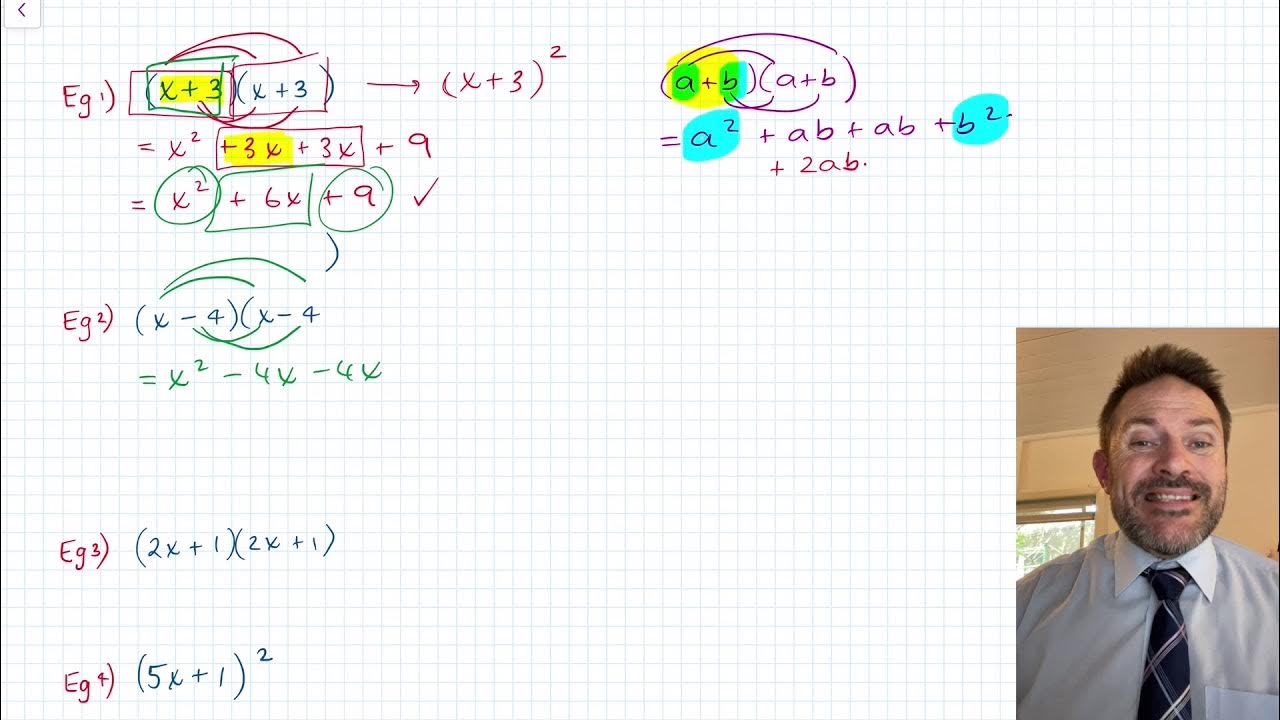 Eg 1) (x + 3)(x + 3) → (x + 3)²
= x² + 3x + 3x + 9
= x² + 6x + 9 ✓
)
Eg 2) (x − 4)(x − 4
= x² − 4x − 4x
Eg 3) (2x + 1)(2x + 1)
Eg 4) (5x + 1)²
(a + b)(a + b)
= a² + ab + ab + b².
+ 2ab.